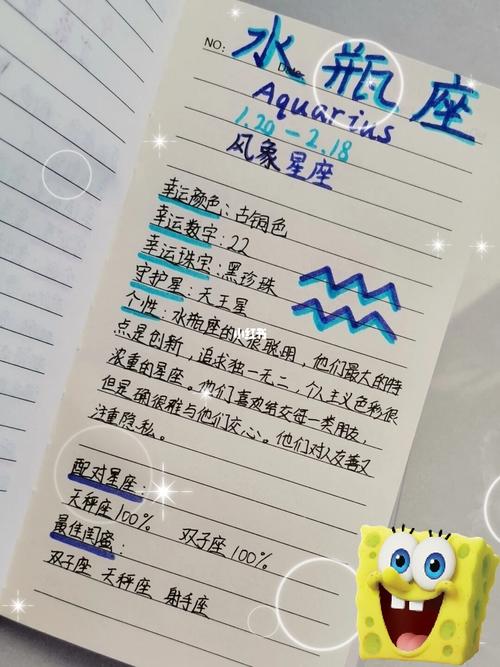 NO:
水瓶座
Date
Aquarius
1.20-2.18
风象星座
幸运颜色:古铜色
幸运数字:22
幸运珠宝:黑珍珠
守护星:天王星
个性:水瓶座的人很聪明,他们最大的特
点是创新,追求独一无二,个人主义色彩很
浓重的星座。他们喜欢结交每一类朋友,
但是确很难与他们交心。他们对人友善又
注重隐私。
小红书
配对星座:
天秤座100% 双子座100%
最佳闺蜜:
双子座 天秤座 射手座